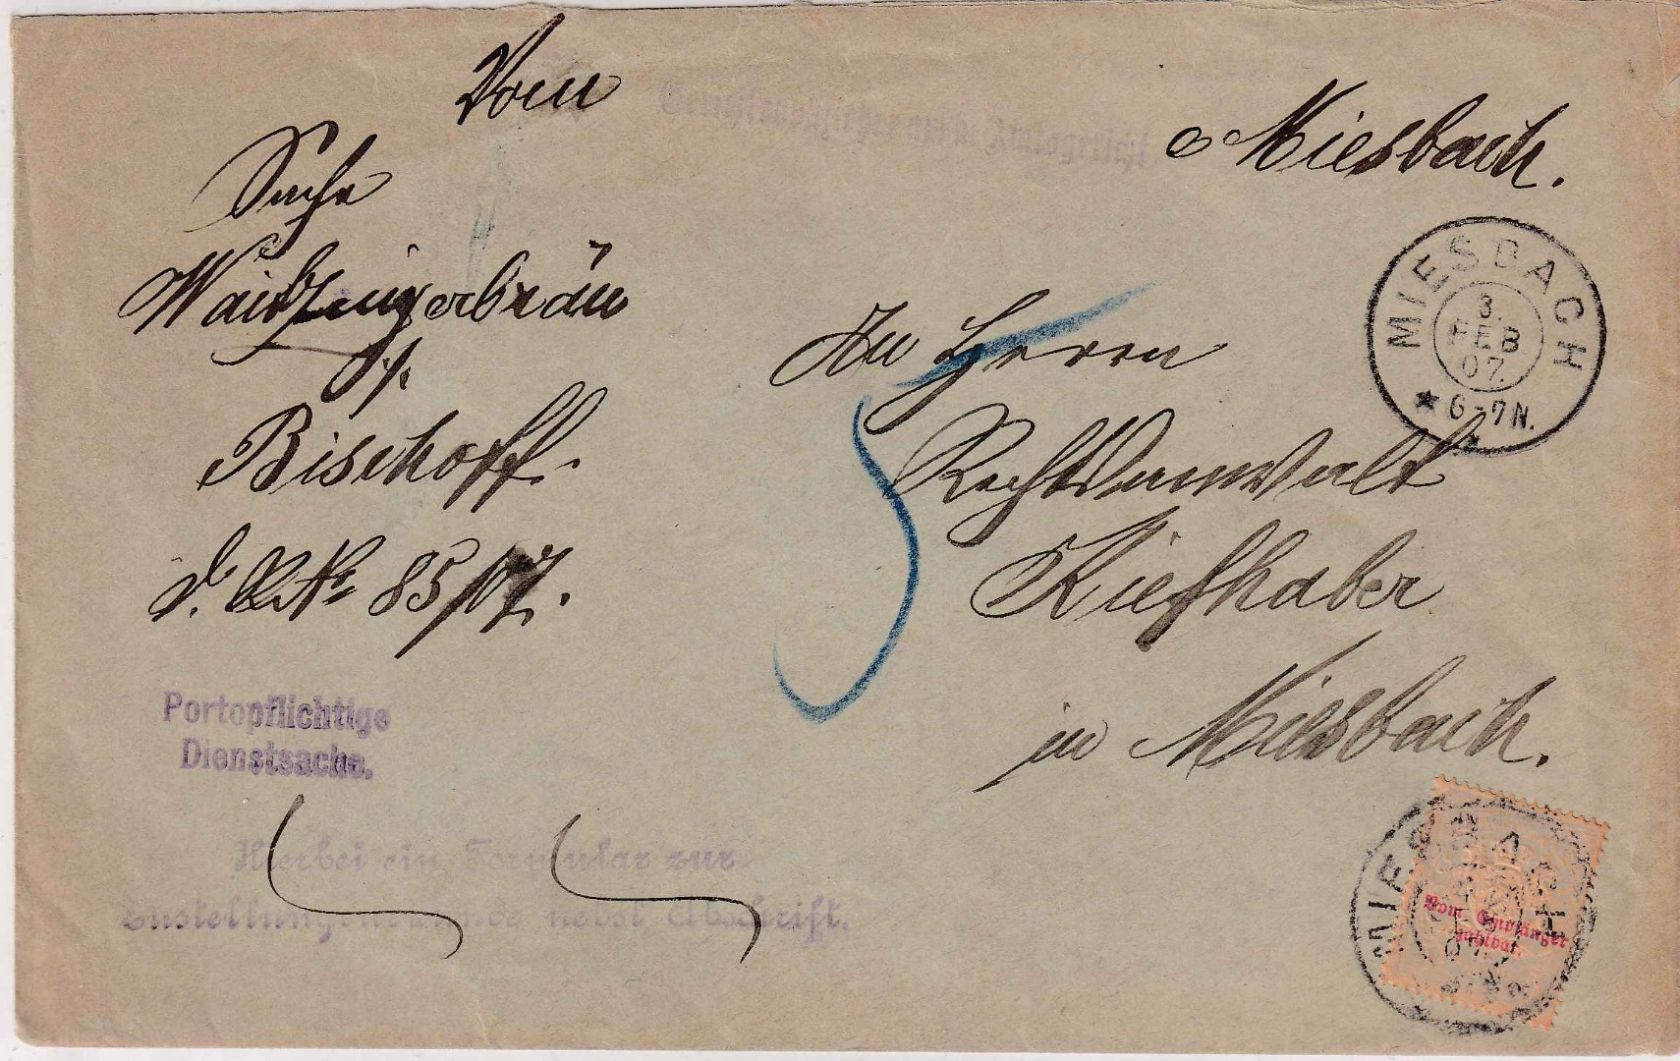 Vom Gerichtsvollzieher am k. Amtsgericht Miesbach.
Sache
Waitzingerbräu
Bischoff.
No 85/07.
Portopflichtige
Dienstsache.
Hierbei ein Formular zur
Zustellungsurkunde nebst Abschrift.
MIESBACH
3.
FEB
07.
6-7N.
An Herrn
5
Rechtsanwalt
Kiefhaber
in Miesbach.
MIESBACH
Vom Empfänger
zahlbar.